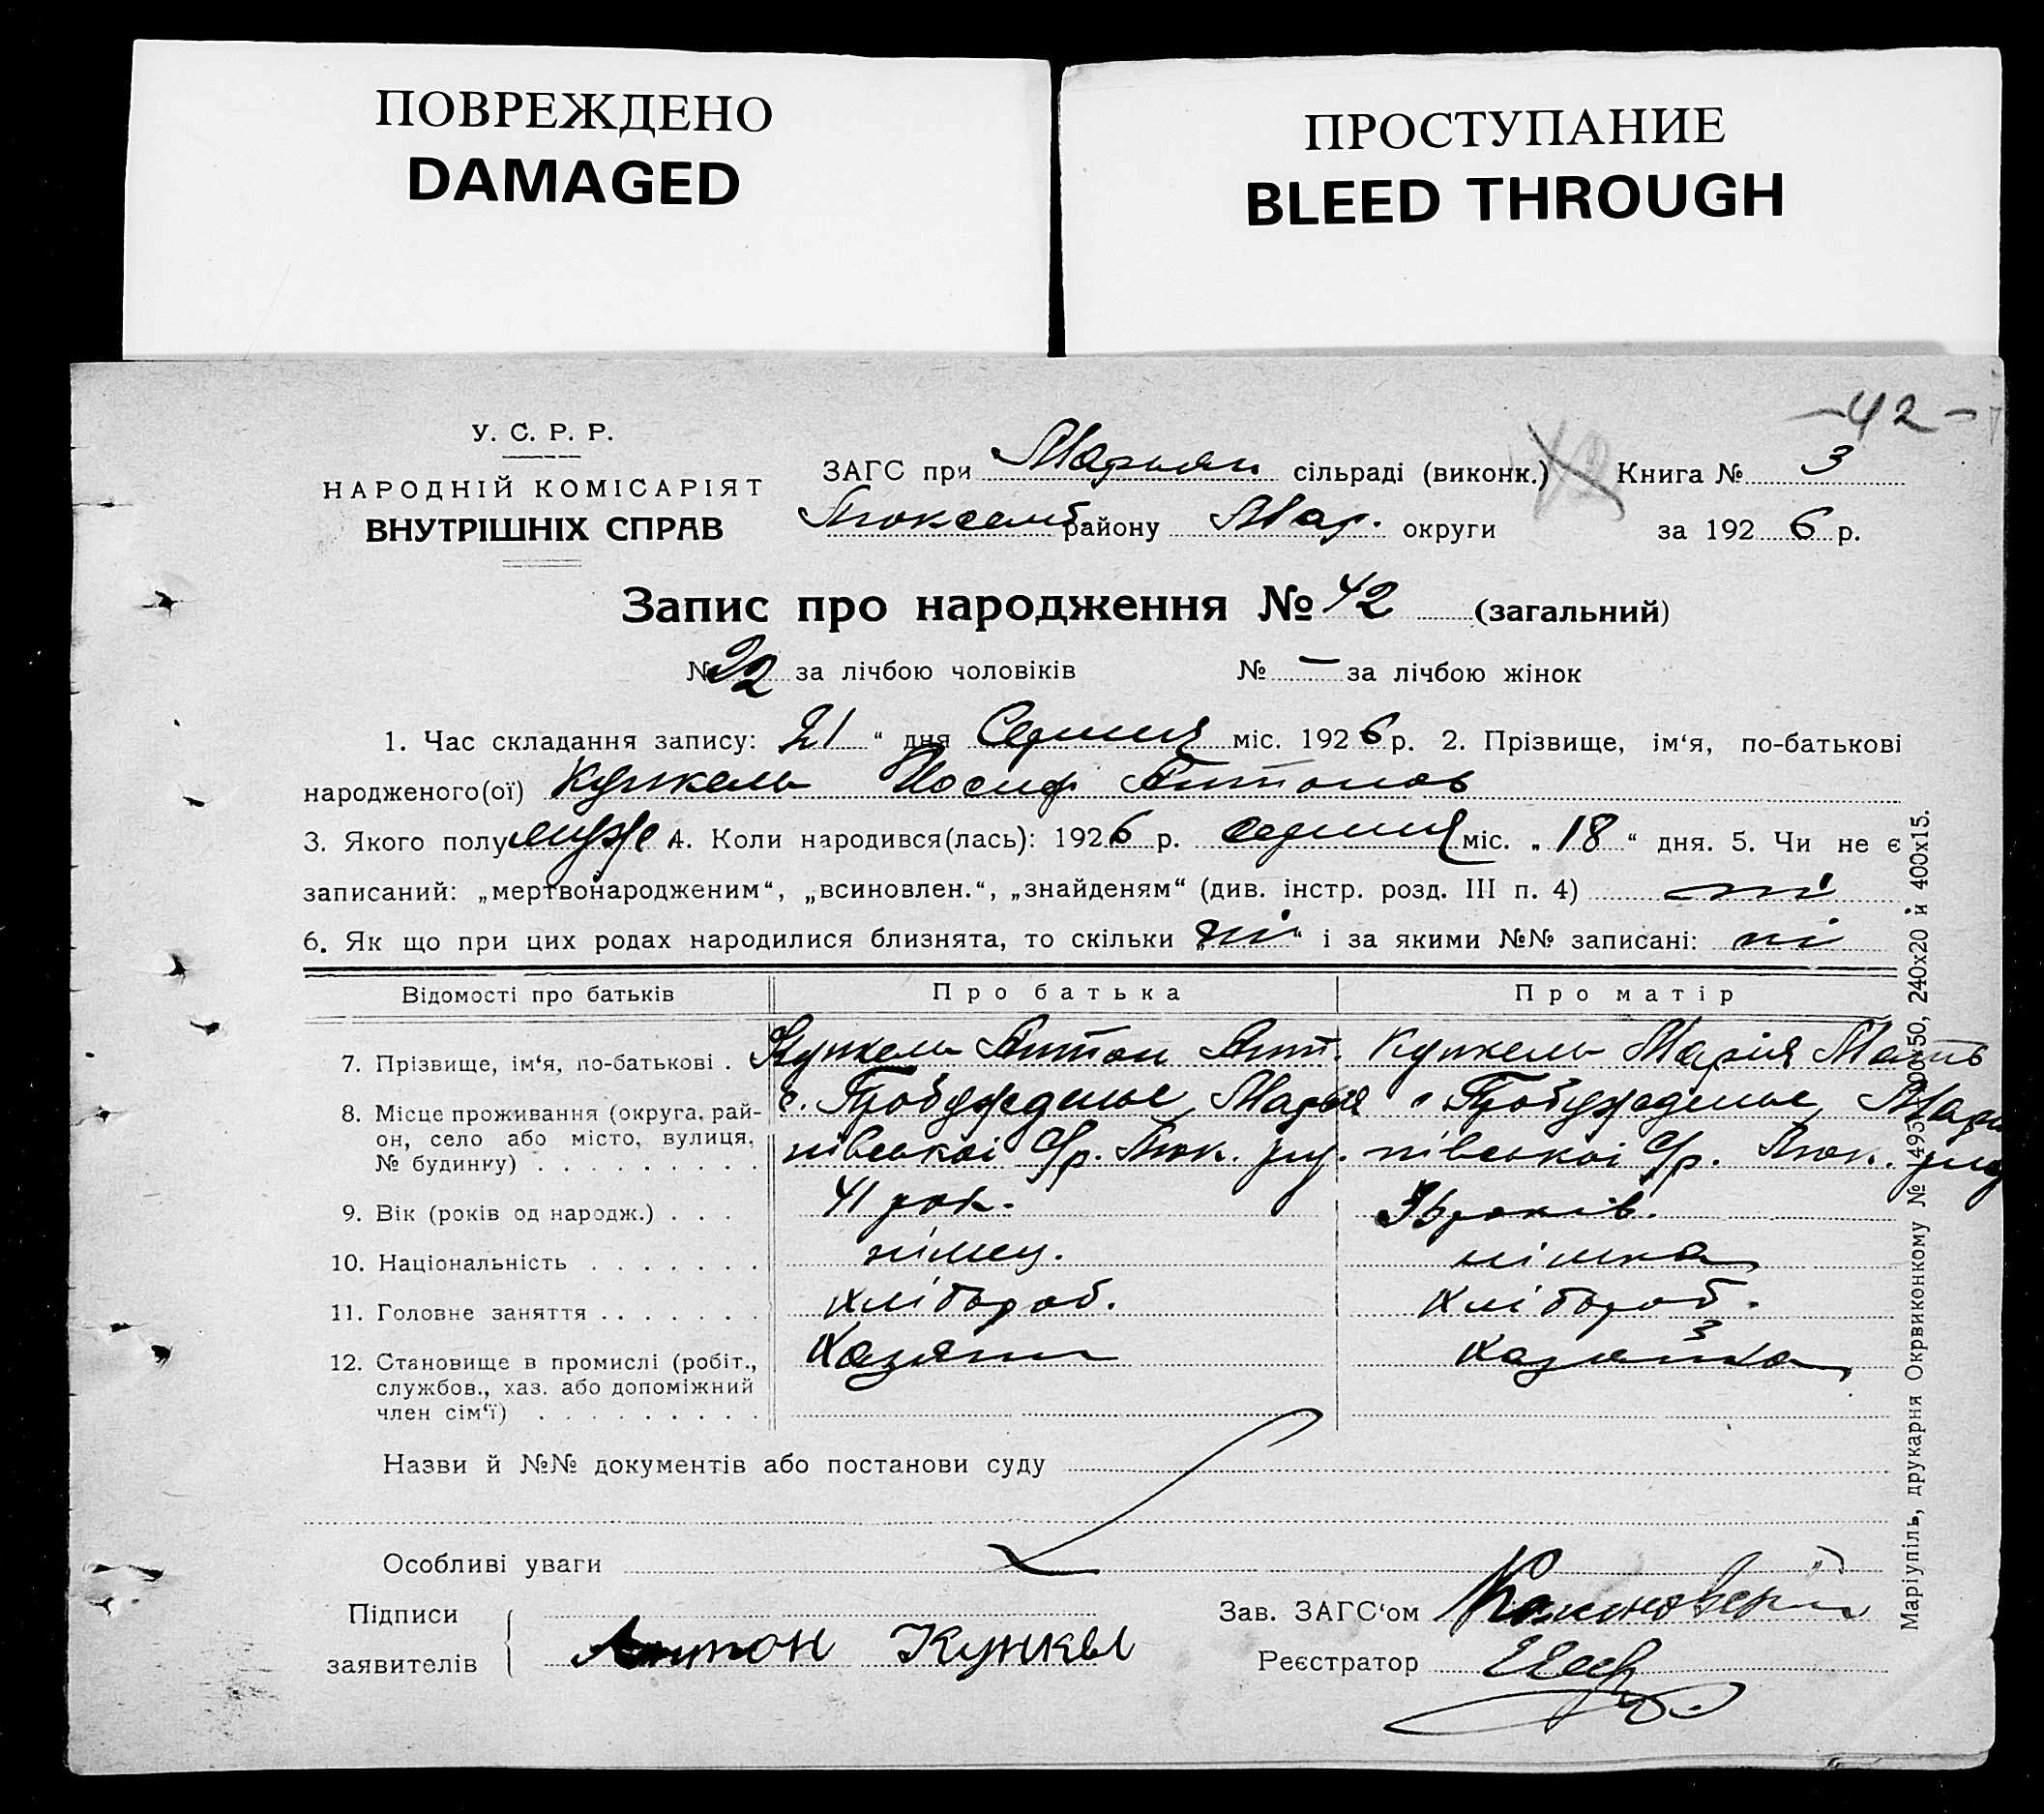 ПОВРЕЖДЕНО
DAMAGED
ПРОСТУПАНИЕ
BLEED THROUGH
-42-
У. С. Р. Р.
НАРОДНІЙ КОМІСАРІЯТ
ВНУТРІШНІХ СПРАВ
ЗАГС при Марьян сільраді (виконк.) Книга № 3
району Мар. округи за 1926 р.
Запис про народження № 42 (загальний)
№ 22 за лічбою чоловіків № — за лічбою жінок
1. Час складання запису: 21 “ дня Серпня міс. 1926 р. 2. Прізвище, ім‘я, по-батькові
народженого(ої) Кункель Иосиф Антонов
3. Якого полу муж 4. Коли народився(лась): 1926 р. серпня міс. „ 18 “ дня. 5. Чи не є
записаний: „мертвонародженим“, „всиновлен.“, „знайденям“ (див. інстр. розд. III п. 4) ні
6. Як що при цих родах народилися близнята, то скільки ні “ і за якими №№ записані: ні
Відомості про батьків Про батька Про матір
7. Прізвище, ім‘я, по-батькові . Кункель Антон Ант. Кункель Марія
8. Місце проживання (округа, рай-
он, село або місто, вулиця,
№ будинку) . . . . . . . . .
с. Пробужденье, Марья с Пробужденье, Марь
нівської с/р. Люк. нівської с/р. Люк.
9. Вік (років од народж.) . . . 41 рок. років.
10. Національність . . . . . . . німец. німка
11. Головне заняття . . . . . . . хлібороб. хлібороб.
12. Становище в промислі (робіт.,
службов., хаз. або допоміжний
член сім‘ї) . . . . . . . . .
Хазяїн хазяйка
Назви й №№ документів або постанови суду
Особливі уваги
Підписи
заявителів
Антон Кункел
Зав. ЗАГС‘ом
Реєстратор
Маріупіль, друкарня Окрвиконкому № 240х20 й 400х15.